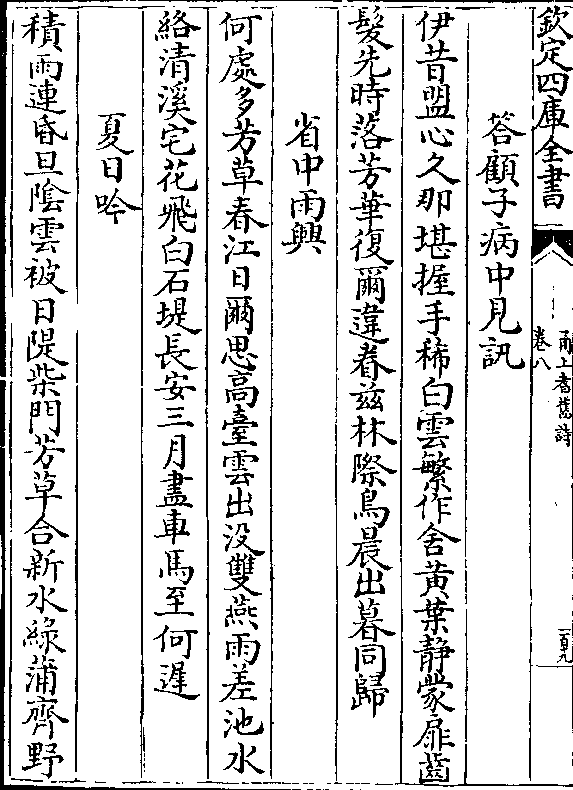 欽定四庫全書
甬上耆舊詩
卷八
答顧子病中見訊
伊昔盟心久那堪握手稀白雲繁作舍黄葉静蒙扉齒
髮先時落芳華復爾違眷兹林際鳥晨出暮同歸
省中雨興
何處多芳草春江日爾思高臺雲出没雙燕雨差池水
絡清溪宅花飛白石堤長安三月盡車馬至何遲
夏日吟
積雨連昏旦陰雲被日隄柴門芳草合新水緑蒲齊野